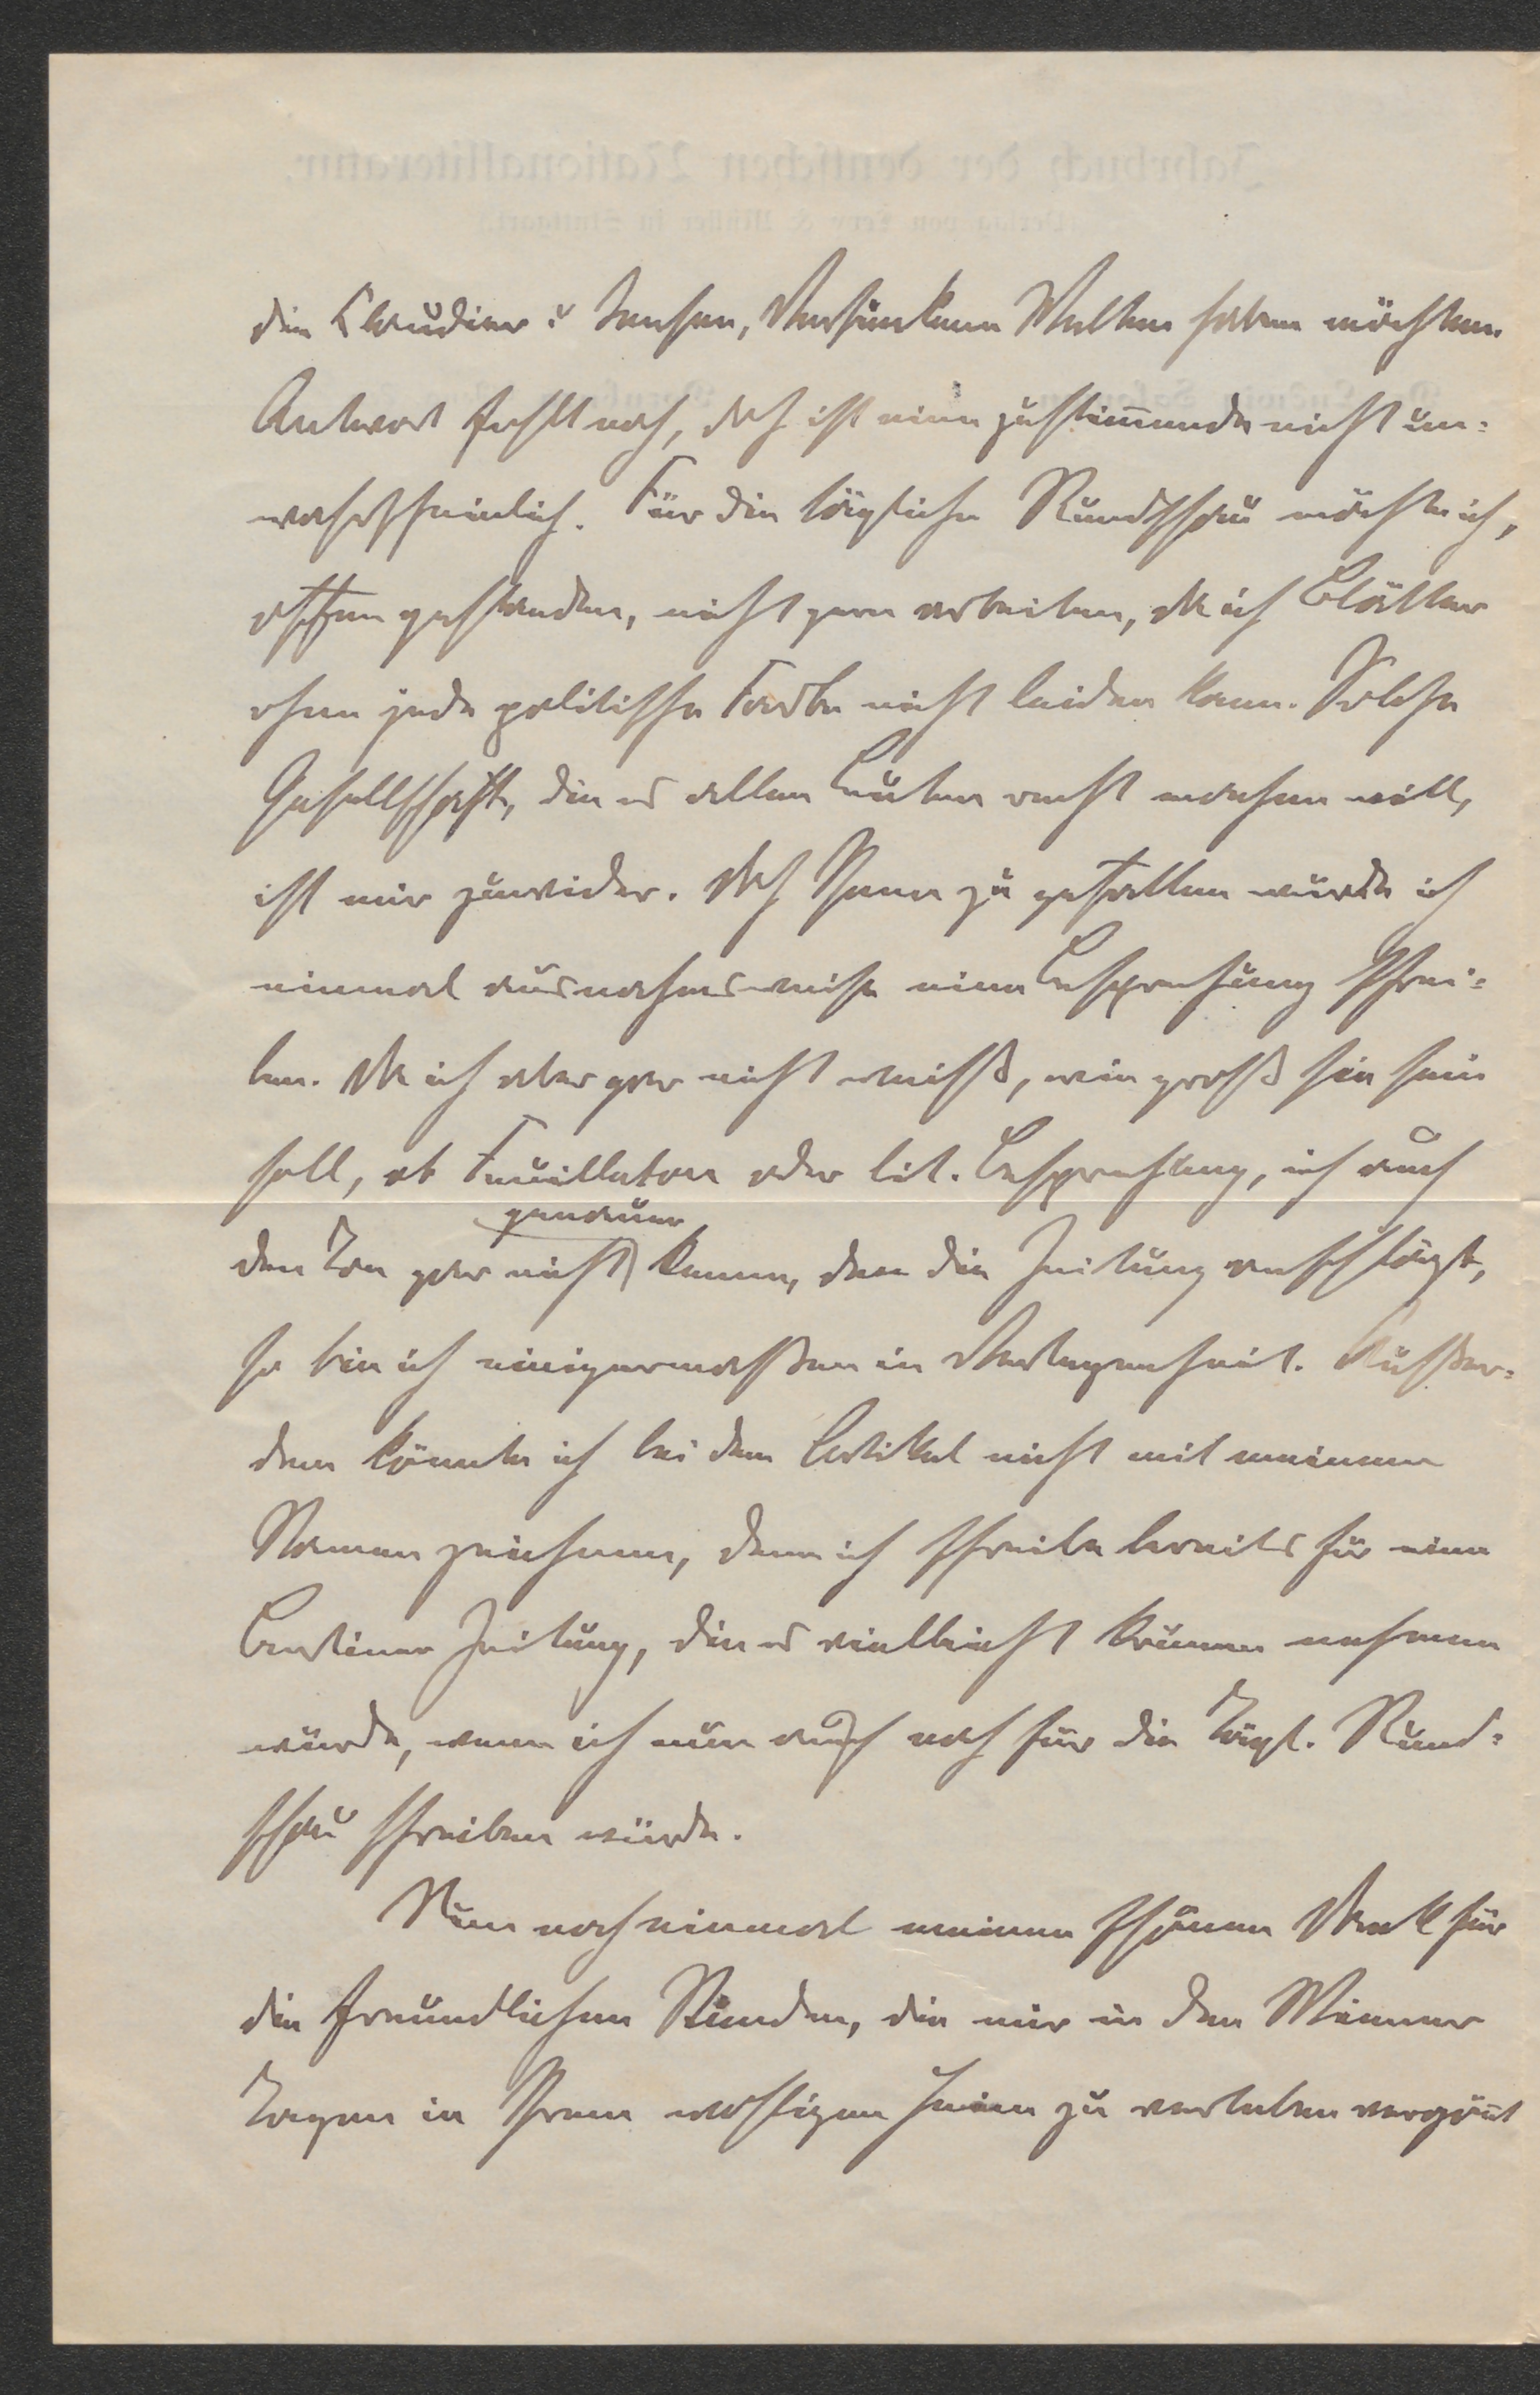 die Claudier u Jensen, Versunkene Welten haben möchten.
Antwort fehlt noch, doch ist eine zustimmende nicht un-
wahrscheinlich. Für die tägliche Rundschau möchte ich,
offen gestanden, nicht gern arbeiten, da ich Blätter
ohne jede politische Farbe nicht leiden kann. Solche
Gesellschaft, die es allen Leuten recht machen will,
ist mir zuwider. Doch Ihnen zu gefallen würde ich
einmal ausnahmsweise eine Besprechung schrei-
ben. Da ich aber gar nicht weiß, wie groß sie sein
soll, ob Feuilleton oder lit. Besprechung, ich auch
genauer
den Ton gar nicht kenne, den die Zeitung anschlägt,
so bin ich einigermaßen in Verlegenheit. Außer-
dem könnte ich bei dem Artikel nicht mit meinem
Namen zeichnen, denn ich schreibe bereits für eine
Berliner Zeitung, die es vielleicht krumm nehmen
würde, wenn ich nun auch noch für die Tägl. Rund-
schau schreiben würde.
Nun noch einmal meinen schönen Dank für
die freundlichen Stunden, die mir in den Wiener
Tagen in Ihrem wohligen Heim zu verleben vergönnt